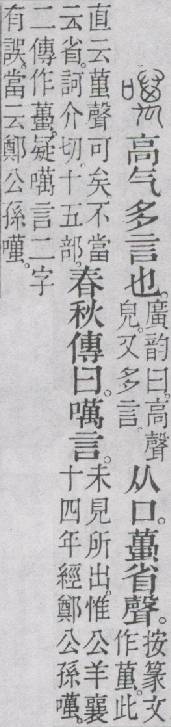 噧 高气多言也。廣韵曰。高聲皃。又多言。从口。蠆省聲。按篆文作萬。此
直云萬聲可矣。不當云省。訶介切。十五部。春秋傳曰。噧言。未見所出。惟公羊襄十四年經鄭公孫囆。
二傳作蠆。疑噧言二字有誤。當云鄭公孫囆。